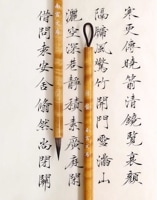 寒更傳曉箭清鏡覽衰顏
隔牖風驚竹開門雪滿山
灑空深巷靜積素廣庭閒
借問袁安舍翛然尚閉關